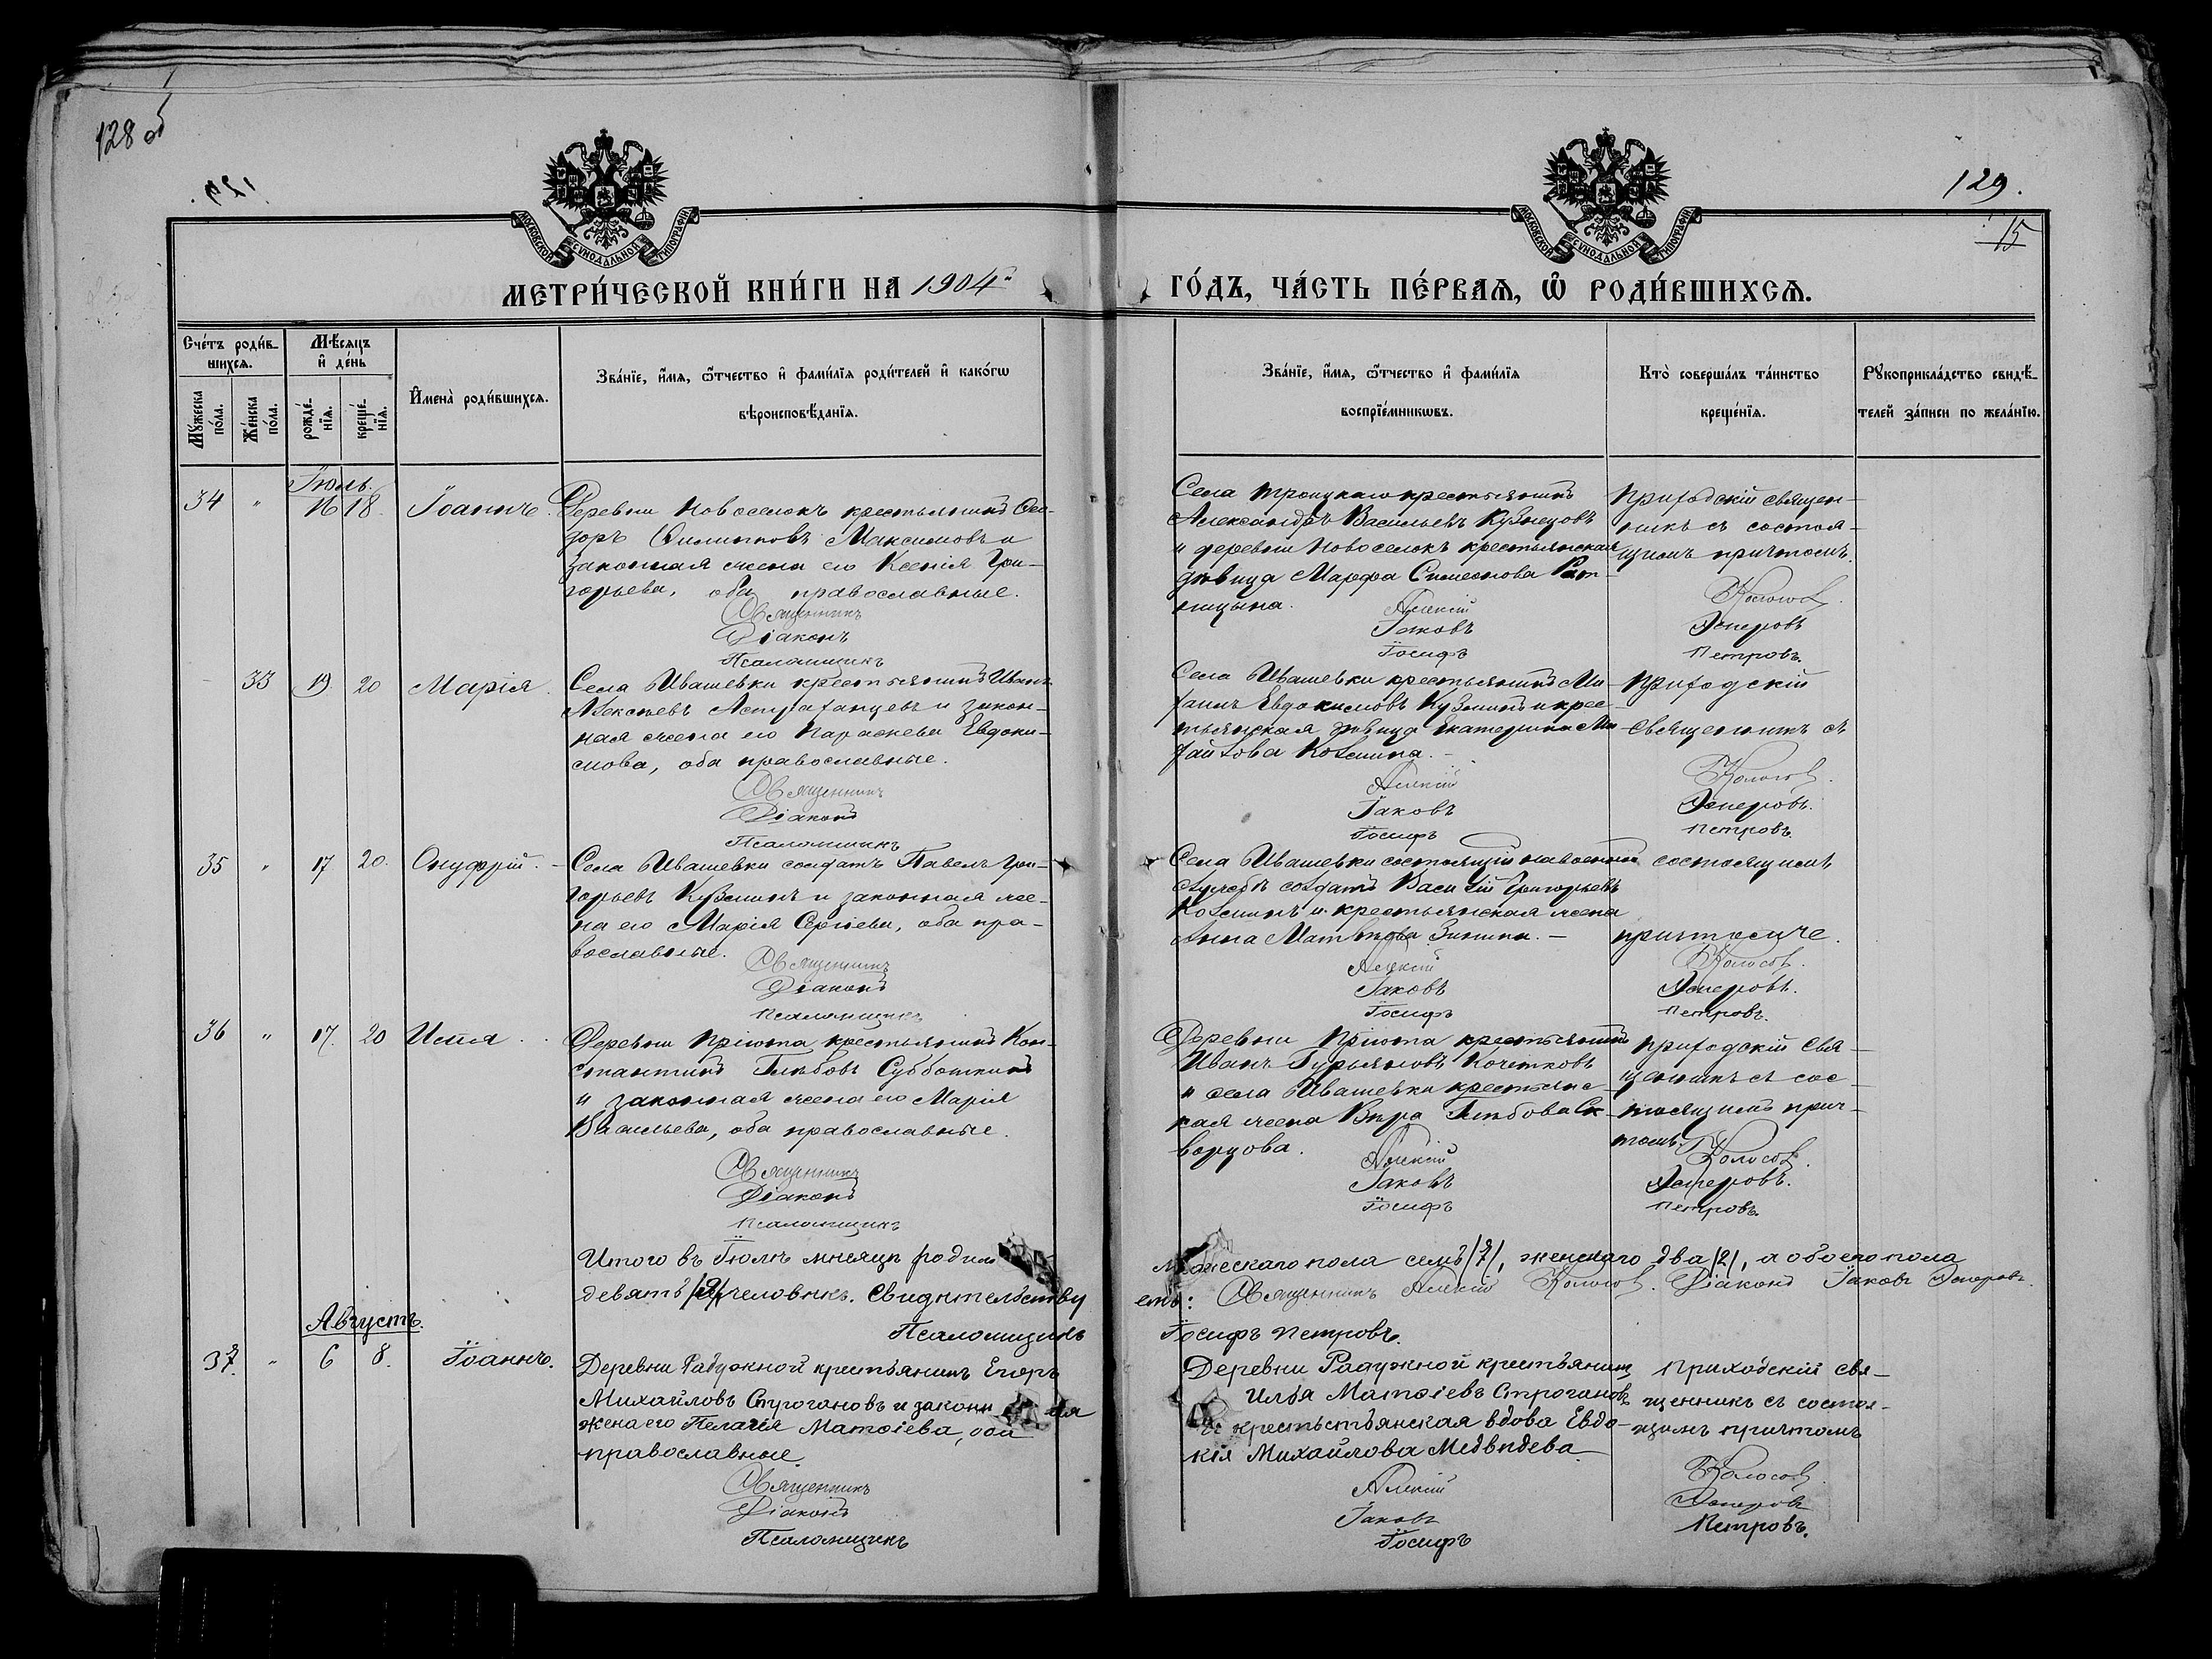 128 об
129.
15
МОСКОВСКОЙ СѴНОДАЛЬНОЙ ТИПОГРАФІИ
МОСКОВСКОЙ СѴНОДАЛЬНОЙ ТИПОГРАФІИ
МЕТРИ́ЧЕСКОЙ КНИ́ГИ НА 1904й
ГО́ДЪ, ЧА́СТЬ ПЕ́РВАѦ, Ѡ҆ РОДИ́ВШИХСѦ.
Сче́тъ роди́в-
шихсѧ.
Мꙋ́жеска по́ла.
Же́нска по́ла.
Мѣ́сѧцъ
и҆ де́нь
рожде́-нїѧ.
креще́-нїѧ.
И҆мена̀ роди́вшихсѧ.
Зва́нїе, и҆́мѧ, ѻ҆́тчество и҆ фами́лїѧ роди́телей и҆ како́гѡ
вѣроисповѣ́данїѧ.
Зва́нїе, и҆́мѧ, ѻ҆́тчество и҆ фами́лїѧ
воспрїе́мникѡвъ.
Кто̀ соверша́лъ та́инство
креще́нїѧ.
Рꙋкоприкла́дство свидѣ́-
телей за́писи по жела́нїю.
Іюль.
34 " 16 18. Іоаннъ.
Деревни Новоселокъ крестьянинъ Ѳео-
доръ Филипповъ Максимовъ и
законная жена его Ксенія Гри-
горьева, оба православные.
Священникъ
Діаконъ
Псаломщикъ
Села Троицкаго крестьянинъ
Александръ Васильевъ Кузнецовъ
и деревни Новоселокъ крестьянская
дѣвица Марфа Симеонова Рат-
ницына.
Алексій
Іаковъ
Іосифъ
Приходскій священ-
никъ съ состоя-
щимъ причтомъ.
Колосовъ.
Эсперовъ
Петровъ.
33 19. 20 Марія.
Села Ивашевки крестьянинъ Иванъ
Алексѣевъ Астраханцевъ и закон-
ная жена его Параскева Евдоки-
мова, оба православные.
Священникъ
Діаконъ
Псаломщикъ
Села Ивашевки крестьянинъ Ми-
хаилъ Евдокимовъ Кузминъ и крес-
тьянская дѣвица Екатерина Ми-
хайлова Козмина.
Алексій
Іаковъ
Іосифъ
Приходскій
священникъ съ
Колосовъ.
Эсперовъ.
Петровъ
35 " 17 20. Онуфрій.
Села Ивашевки солдатъ Павелъ Гри-
горьевъ Кузминъ и законная же-
на его Марія Сергіева, оба пра-
вославные.
Священникъ
Діаконъ
Псаломщикъ
Села Ивашевки состоящій на военной
службѣ солдатъ Василій Григорьевъ
Козминъ и крестьянская жена
Анна Матвѣева Зинина. —
Алексій
Іаковъ
Іосифъ
состоящимъ
причтомъ.
Колосовъ.
Эсперовъ.
Петровъ.
36 " 17. 20 Илія.
Деревни Пріюта крестьянинъ Кон-
стантинъ Глѣбовъ Субботкинъ
и законная жена его Марія
Васильева, оба православные.
Священникъ
Діаконъ
Псаломщикъ
Деревни Пріюта крестьянинъ
Иванъ Гурьяновъ Кочетковъ
и села Ивашевки крестьянс-
кая жена Вѣра Глѣбова Ск-
ворцова.
Алексій
Іаковъ
Іосифъ
Приходскій свя-
щенникъ съ сос-
тоящимъ прич-
томъ.
Колосовъ.
Эсперовъ.
Петровъ.
Итого въ Іюлѣ мѣсяцѣ родил
мужескаго пола семь /7/, женскаго два /2/, а обоего пола
девять /9/ человѣкъ. Свидѣтельству
емъ: Священникъ Алексій Колосовъ. Діаконъ Іаковъ Эсперовъ.
Псаломщикъ
Іосифъ Петровъ.
Августъ.
37. " 6 8. Іоаннъ.
Деревни Радужной крестьянинъ Егоръ
Михайловъ Строгановъ и законн ая
жена его Пелагія Матѳіева, оба
православные.
Священникъ
Діаконъ
Псаломщикъ
Деревни Радужной крестьянинъ
Илья Матѳіевъ Строгановъ
и крестьстьянская вдова Евдо-
кія Михайлова Медвѣдева.
Алексій
Іаковъ
Іосифъ
Приходскій свя-
щенникъ съ состоя-
щимъ причтомъ
Колосовъ.
Эсперовъ
Петровъ.